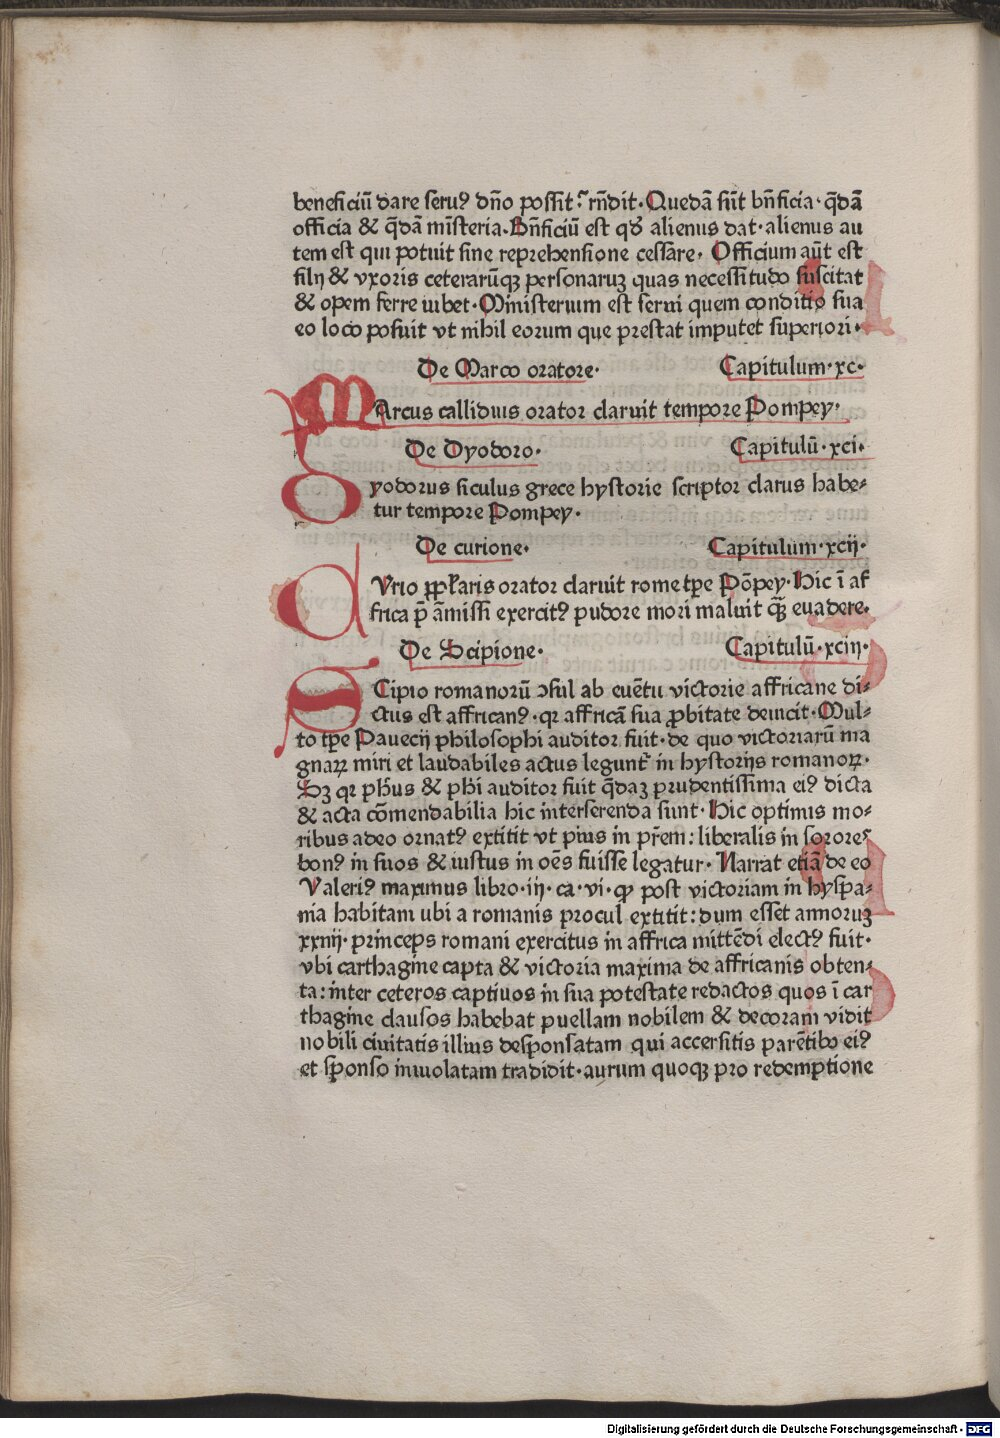 beneficiū dare seruꝰ dn̄o possit? rn̄dit·Quedā sūt bn̄ficia·q̄dā
officia & q̄dā mīsteria.Bn̄ficiū est qđ alienus dat·alienus au
tem est qui potuit sine reprehensione cessare· Officium aūt est
filij & vxoris ceterarūqꝫ personaruꝫ quas necessitudo suscitat
& opem ferre iubet·Ministerium est serui quem conditio sua
eo loco posuit vt nihil eorum que prestat imputet superiori·
De Marco oratore· Capitulum·xc·
MArcus callidius orator claruit tempore Pompey·
De Dyodoro· Capitulū·xci·
Dyodorus siculus grece hystorie scriptor clarus habe-
tur tempore Pompey·
De curione· Capitulum·xcij·
CVrio pp̄laris orator claruit rome tp̄e Pōpey·Hic ī af
frica p̄ amissi exercitꝰ pudore mori maluit q̄ꝫ euadere·
De Scipione· Capitulū·xciij·
SCipio romanorū ↄsul ab euētu victorie affricane di-
ctus est affricanꝰ·qr affricā sua ꝓbitate deuicit·Mul-
to tp̄e Pauecij philosophi auditor fuit·de quo victoriarū ma
gnaꝝ miri et laudabiles actus legunt᷑ in hystorijs romanoꝝ·
Sꝫ qr pħus & pħi auditor fuit q̄daꝫ prudentissima eiꝰ dicta
& acta cōmendabilia hic interserenda sunt·Hic optimis mo-
ribus adeo ornatꝰ extitit vt pius in pr̄em:liberalis in sorores
bonꝰ in suos & iustus in oēs fuisse legatur·Narrat etiā de eo
Valeriꝰ maximus libro·iij·ca·vi·ꝙ post victoriam in hyspa-
nia habitam ubi a romanis procul extitit:dum esset annoruꝫ
xxiiij·princeps romani exercitus in affrica mittēdi electꝰ fuit·
vbi carthagine capta & victoria maxima de affricanis obten-
ta:inter ceteros captiuos in sua potestate redactos quos ī car
thagine clausos habebat puellam nobilem & decoram vidit
nobili ciuitatis illius desponsatam qui accersitis parētibꝰ eiꝰ
et sponso inuiolatam tradidit·aurum quoqꝫ pro redemptione
Digitalisierung gefördert durch die Deutsche Forschungsgemeinschaft - DFG